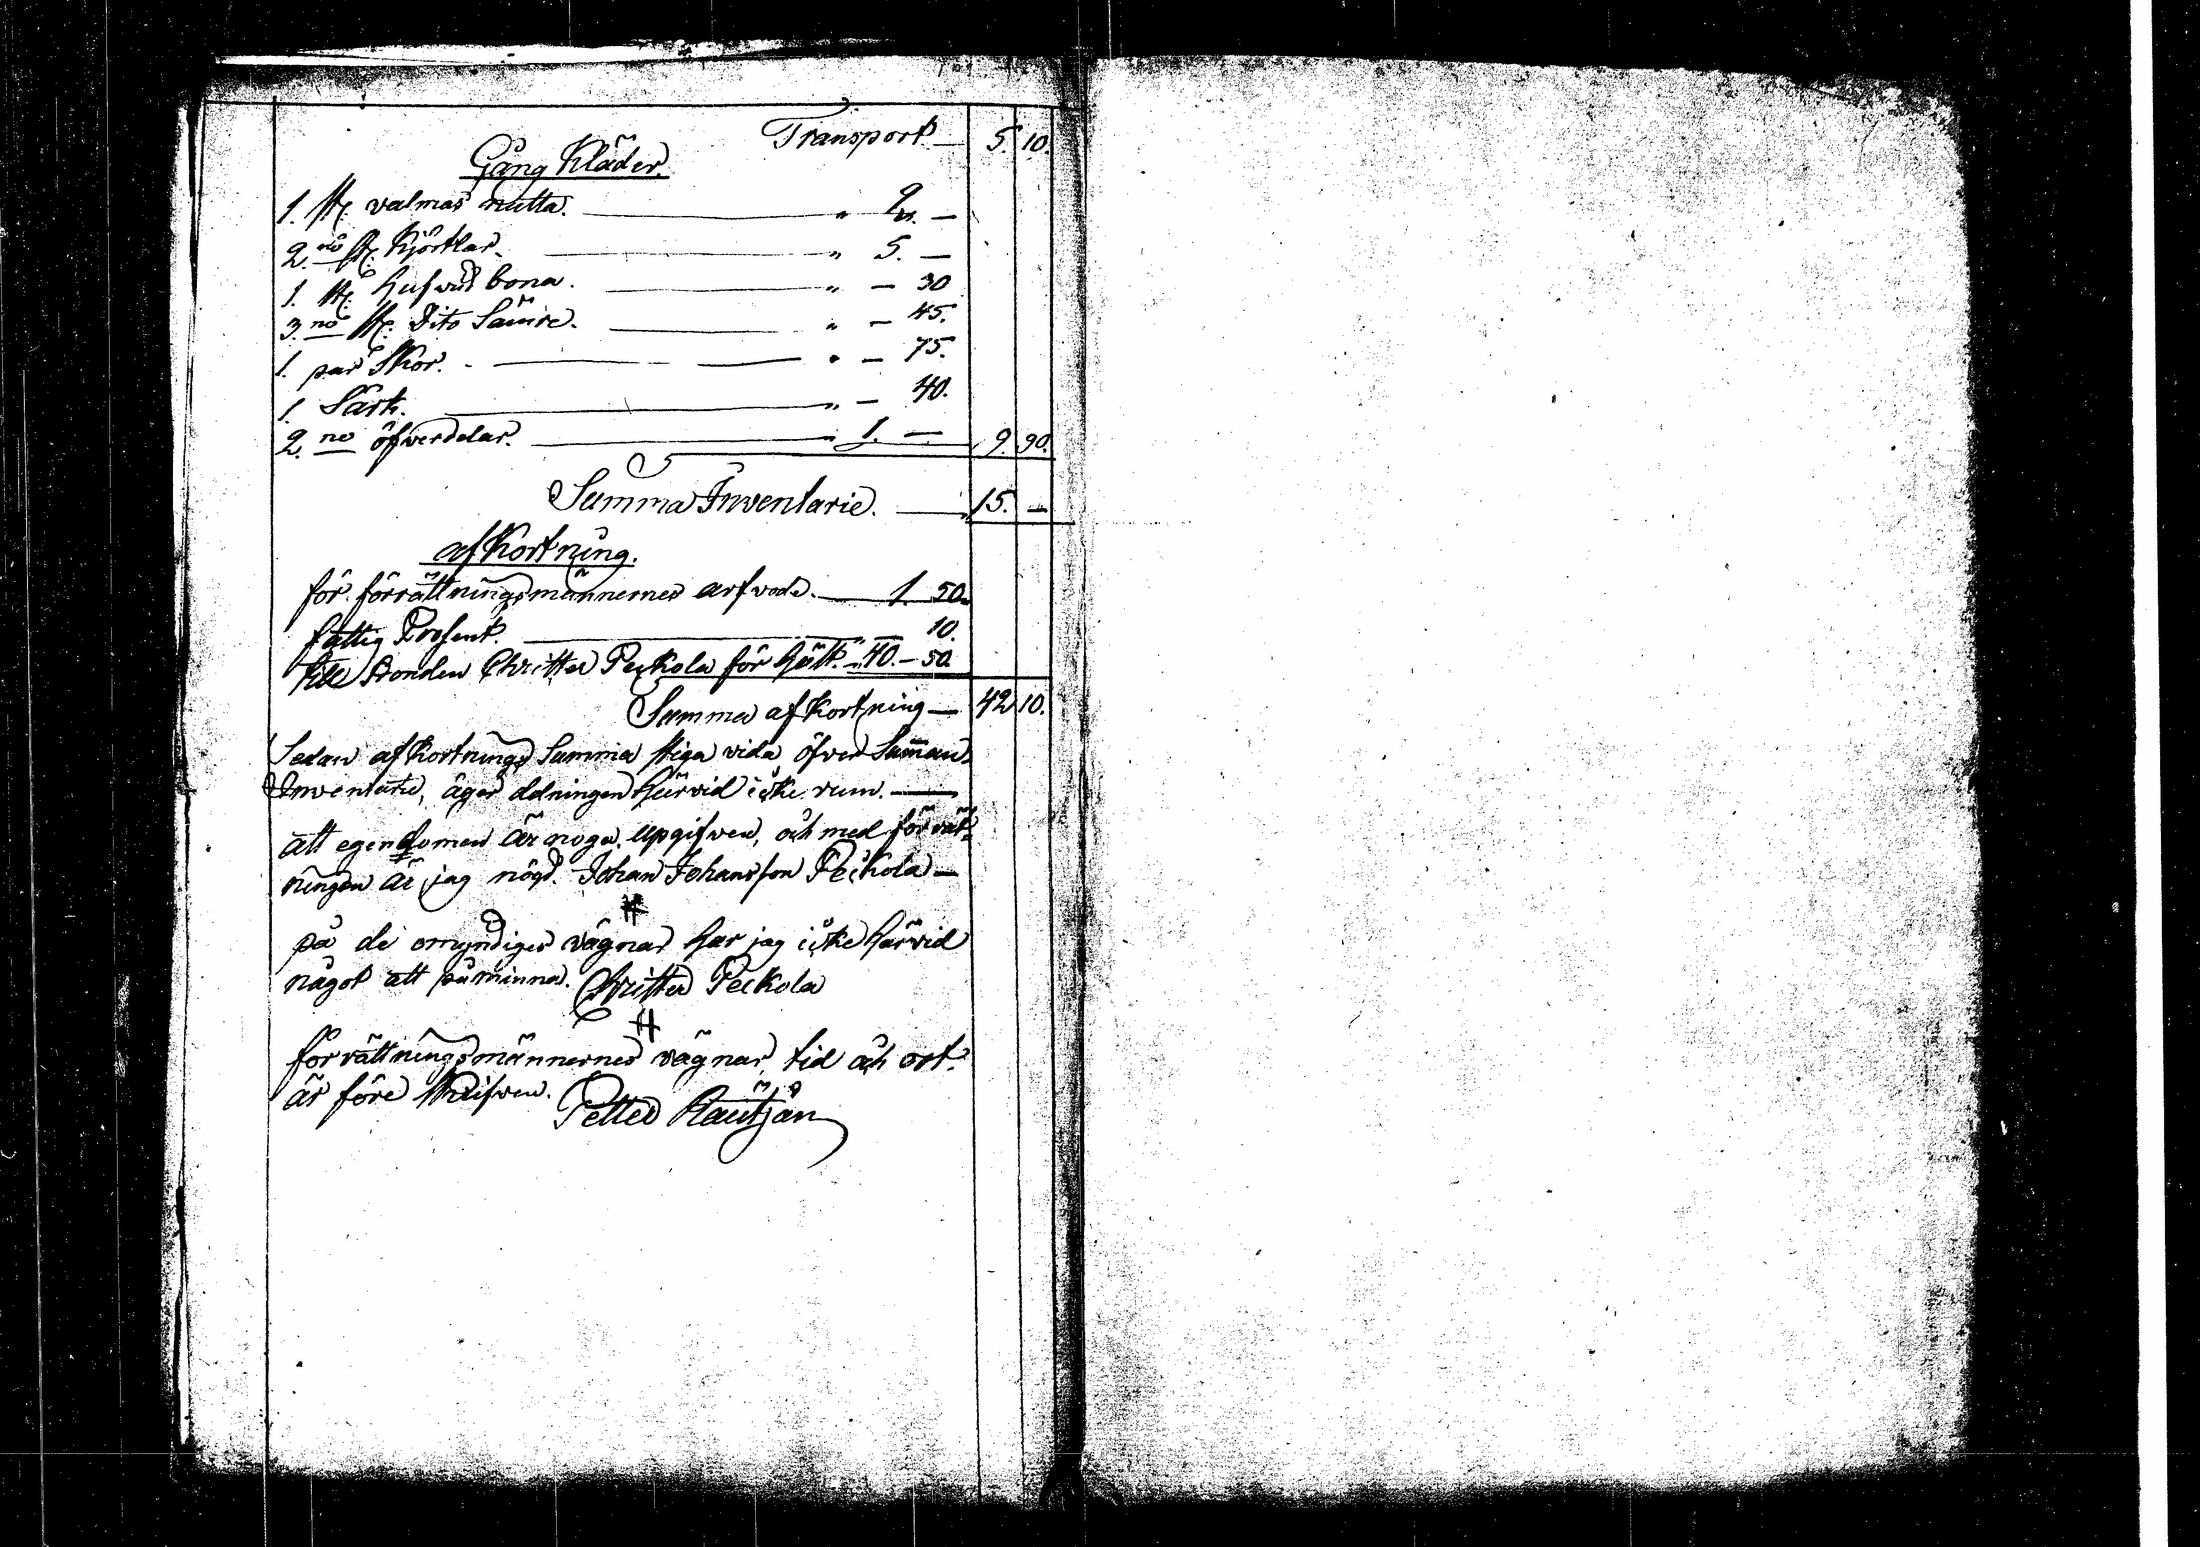 Transport — 5. 10.
Gång Kläder.
1. st. valmas mutta. — " 2. —
2. no st. Kjörtlar. — " 5. —
1. st. hufwud bona. — " — 30
3. no st. Dito Sämre. — " — 45.
1. par Skor. — " — 75.
1. Särk. — " — 40.
2. no öfwerdelar. — 1. — 9. 90.
Summa Inventarie. — 15. —
afkortning.
för förrättningsmännernes arfvode. — 1. 50.
fattig Prosent. — " — 10.
till Bonden Christer Peckola för — 40. — 50.
Summa afkortning — 42 10.
Sedan afkortnings Summa stiga vida öfver Summan
Inventarie, äger delningen härvid icke rum. —
att egendomen är noga upgifwen, och med förrät-
ningen är jag nögd. Johan Johansson Peckola —
på de omyndiges vägnar har jag icke härvid
något att påminna. Christer Peckola
förrättningsmännernes vägnar, tid och ort
är före skrifwen. Petter Rautjän